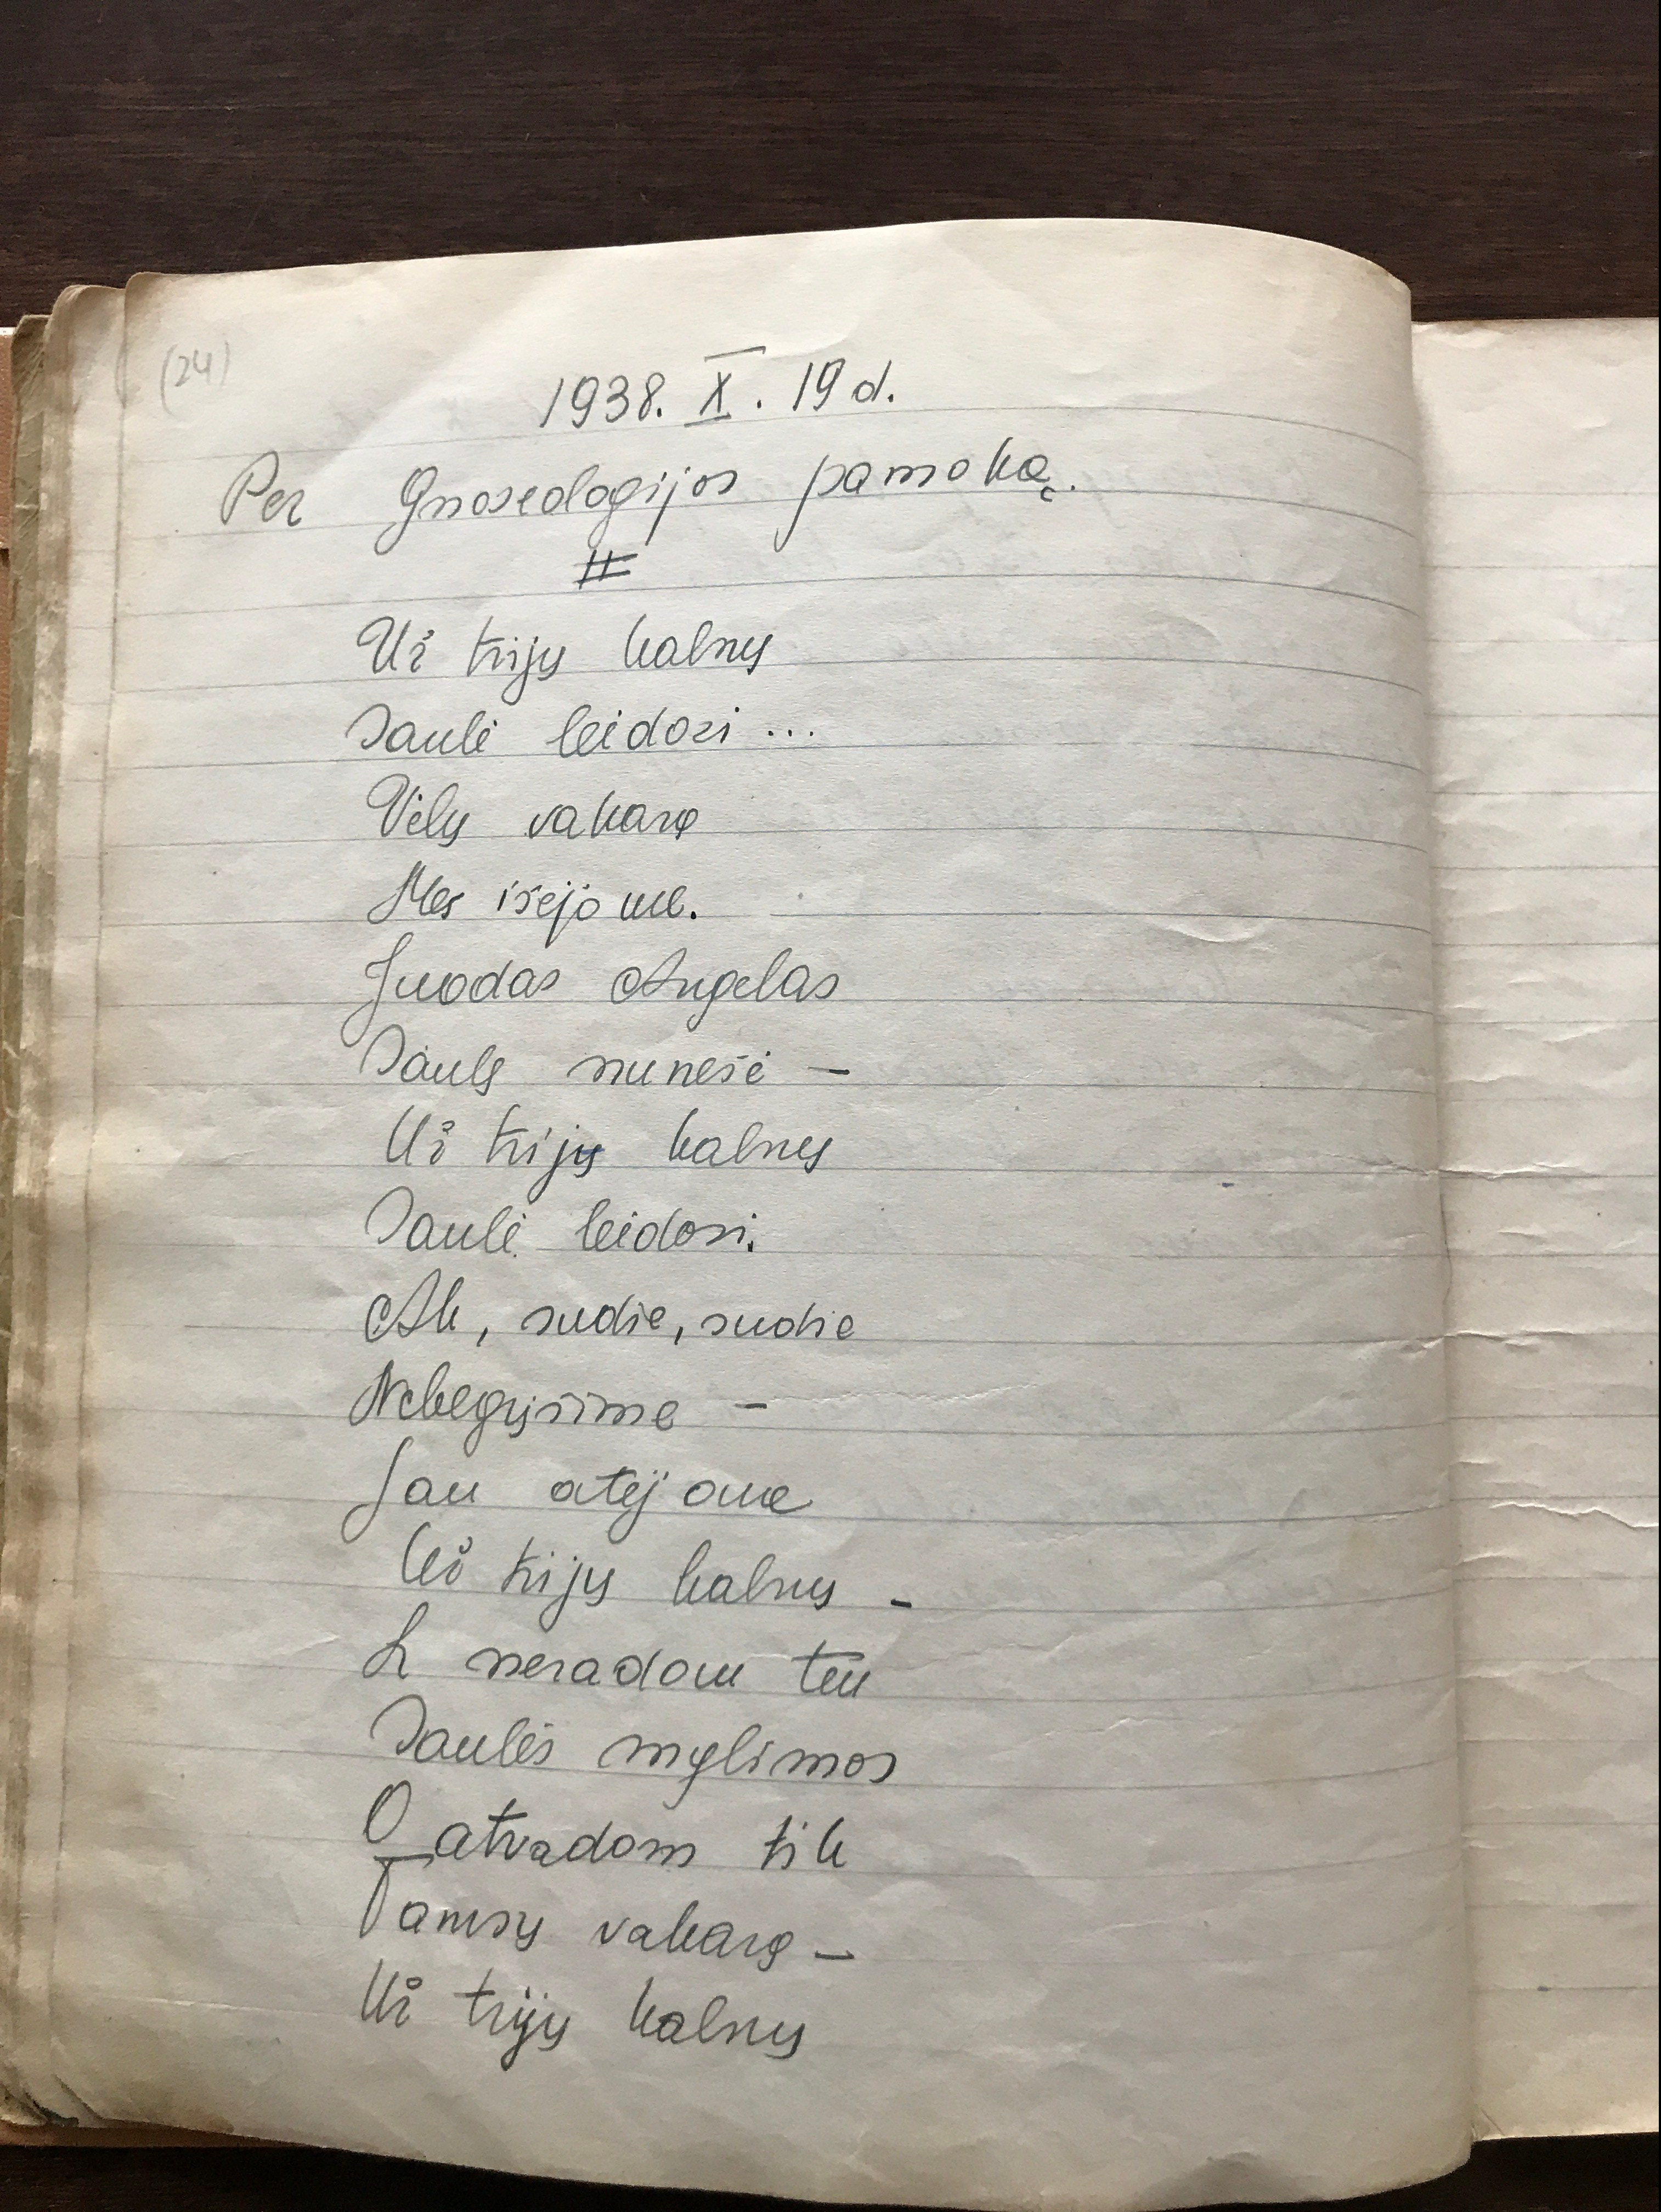 (24)
1938. X. 19 d.
Per Gnoseologijos pamoką.
Už trijų kalnų
Saulė leidosi ...
Vėlų vakarą
Mes išėjome.
Juodas Angelas
Saulę nunešė –
Už trijų kalnų
Saulė leidosi.
Ak, sudie, sudie
Nebegrįšime –
Jau atėjome
Už trijų kalnų –
Ir neradom ten
Saulės mylimos
O atradom tik
Tamsų vakarą –
Už trijų kalnų